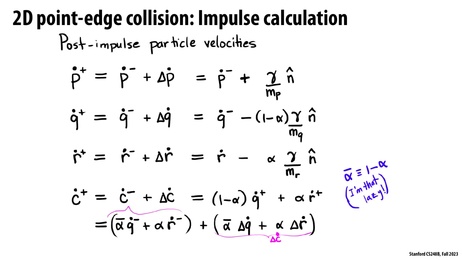 2D point-edge collision: Impulse calculation
Post-impulse particle velocities
ṗ⁺ = ṗ⁻ + Δṗ = ṗ⁻ + γ/m_p n̂
q̇⁺ = q̇⁻ + Δq̇ = q̇⁻ − (1−α) γ/m_q n̂
ṙ⁺ = ṙ⁻ + Δṙ = ṙ − α γ/m_r n̂
ċ⁺ = ċ⁻ + Δċ = (1−α) q̇⁺ + α ṙ⁺
= (ᾱ q̇⁻ + α ṙ⁻) + (ᾱ Δq̇ + α Δṙ)
Δċ
ᾱ ≡ 1−α
(I'm that
lazy!)
Stanford CS248B, Fall 2023